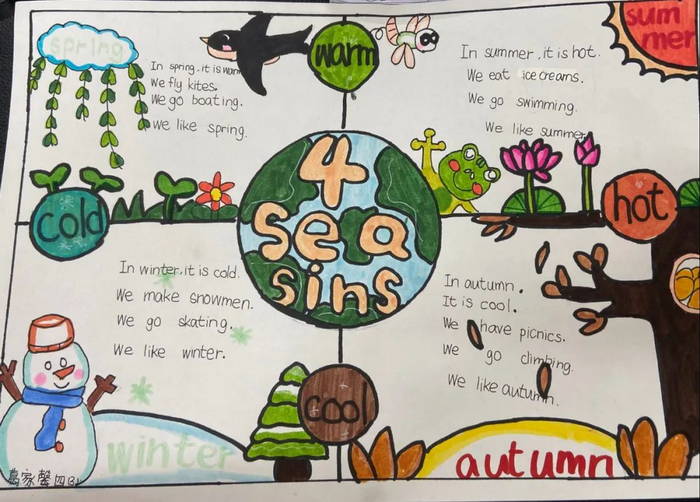 spring
In spring, it is warm
We fly kites.
We go boating.
We like spring.
warm
In summer, it is hot.
We eat ice creams.
We go swimming.
We like summer.
sum
mer
cold
4
Sea
sins
hot
In winter, it is cold.
We make snowmen.
We go skating.
We like winter.
In autumn.
It is cool.
We have picnics.
We go climbing.
We like autumn.
cool
winter
autumn
家馨四